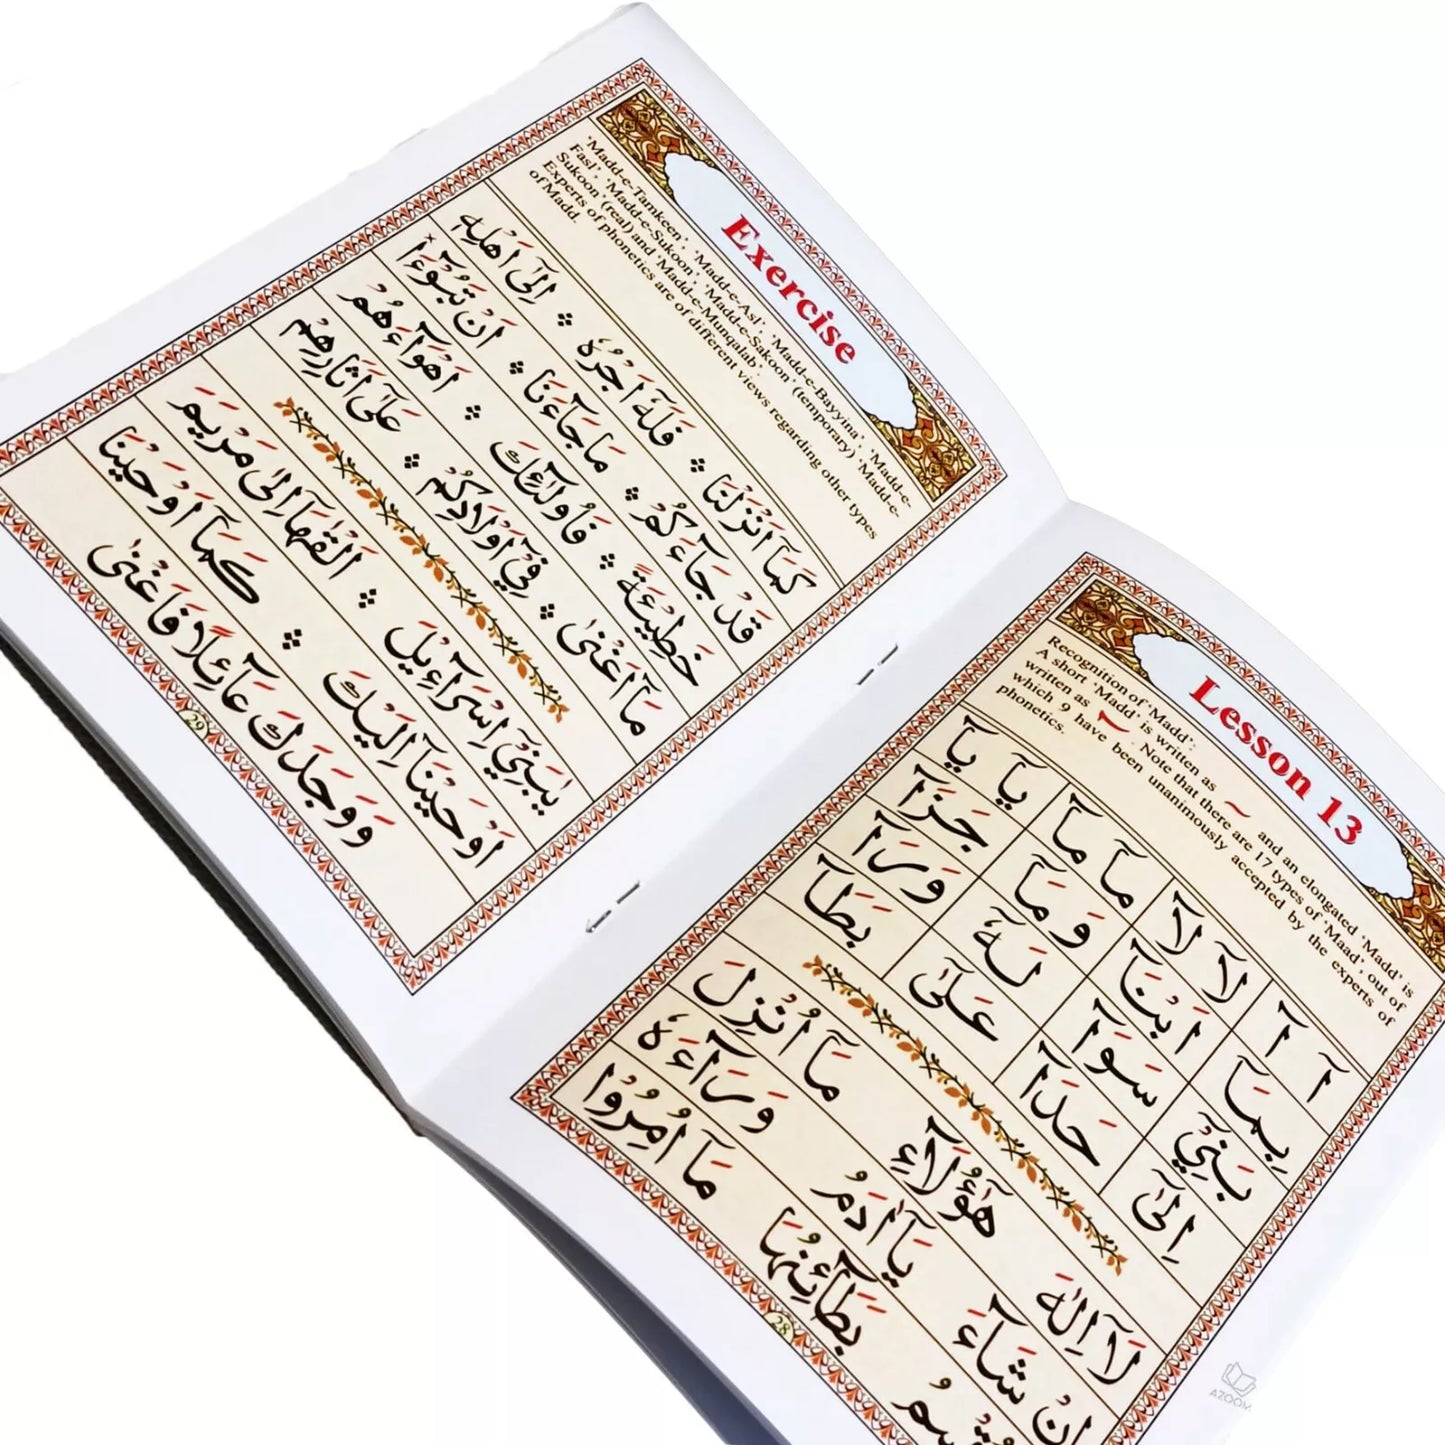 Lesson 13
Recognition of 'Madd':
A short 'Madd' is written as ~ and an elongated 'Madd' is
written as ٓ . Note that there are 17 types of 'Maad', out of
which 9 have been unanimously accepted by the experts of
phonetics.
آ آ لَآ لَآ مَآ مَآ يَآ يَآ
بِمَآ اَبْنَآ وَمَآ جَزَآ
بَنِيْٓ سَوَآ لَهٗٓ وَرَآ
اِلٰىٓ حَدَآ عَلٰىٓ بَطَآ
لَآ اِلٰهَ هٰٓؤُلَآءِ مَآ اُنْزِلَ
اِنْ شَآءَ يَآاٰدَمُ وَرَآءَهٗ
بَطَآئِنُهَا مَآ اُمِرُوْا
28
Exercise
'Madd-e-Tamkeen', 'Madd-e-Asl', 'Madd-e-Bayyina', 'Madd-e-
Fasl', 'Madd-e-Sukoon', 'Madd-e-Sakoon' (temporary) 'Madd-e-
Sukoon' (real) and 'Madd-e-Munqalab'.
Experts of phonetics are of different views regarding other types
of Madd.
كَمَآ اَنْزَلْنَا ۞ فَلَهٗٓ اَجْرُهٗ ۞ اِلٰىٓ اَهْلِهٖ
قَدْ جَآءَكُمْ ۞ مَا جَآءَنَا ۞ اَنْ تَبُوْٓءَا
خَطِيْٓئَةً ۞ فَاُولٰٓئِكَ ۞ اَهْوَآءَهُمْ
مَآ اَغْنٰى ۞ فِيْٓ اَوْلَادِكُمْ ۞ عَلٰىٓ اٰثَارِهِمْ
يٰبَنِيْٓ اِسْرَآءِيْلَ ۞ اَلْقٰهَآ اِلٰى مَرْيَمَ
اَوْحَيْنَآ اِلَيْكَ ۞ كَمَآ اَوْحَيْنَا
وَوَجَدَكَ عَآئِلًا فَاَغْنٰى
29
AZOOM